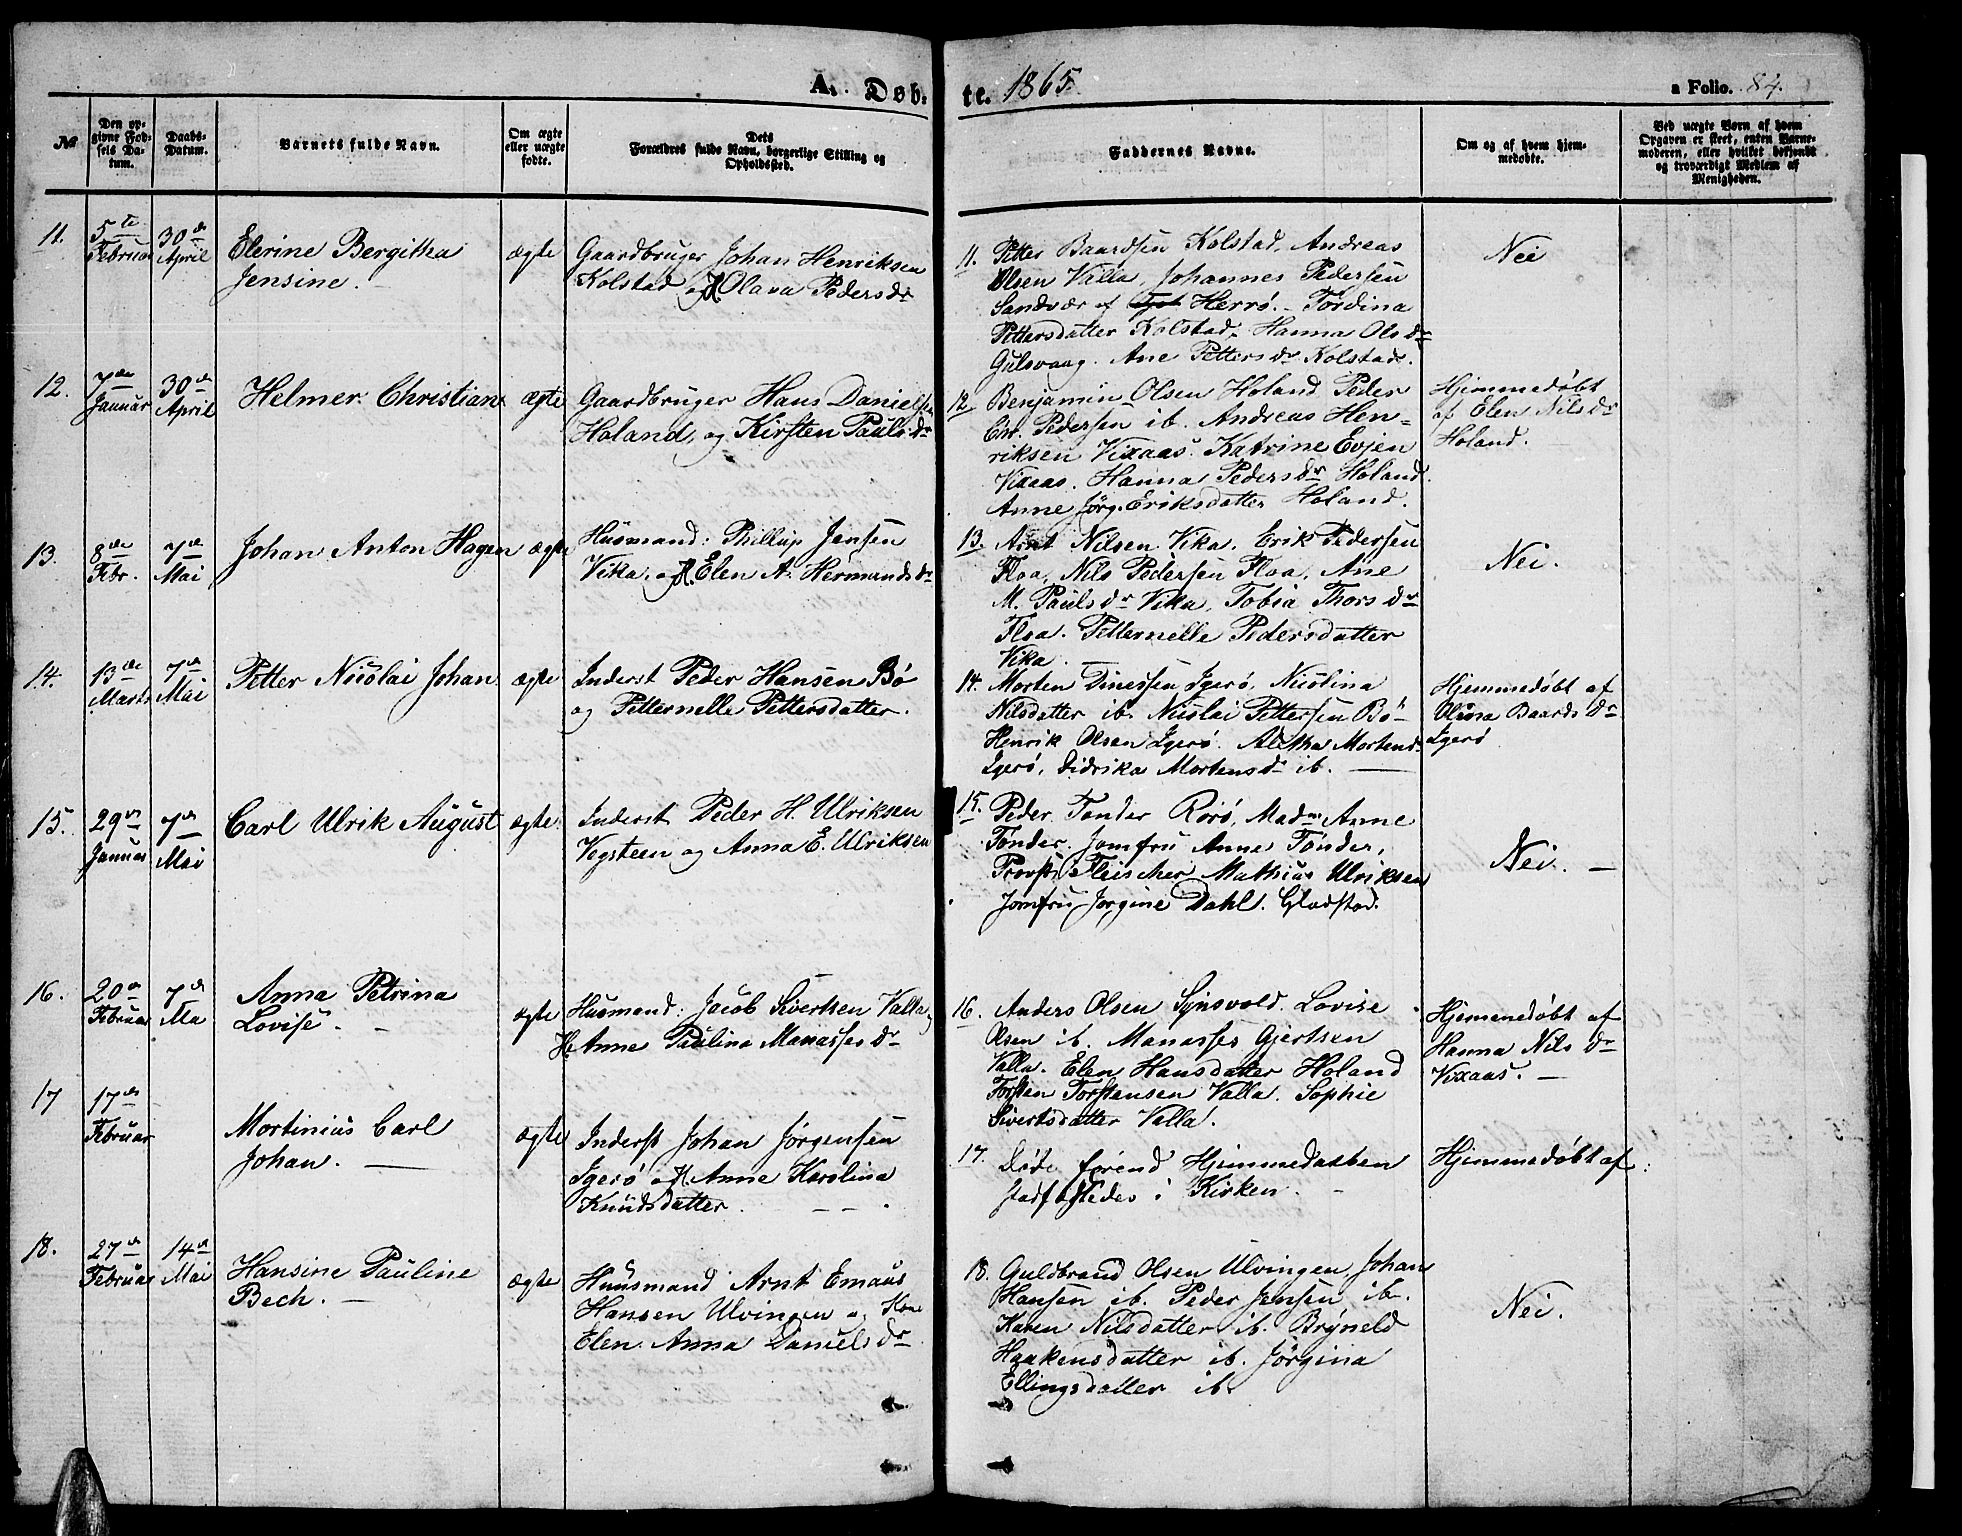 A. Døb- te. 1865. a Folio. 84.
№
Den op-
givne Fød-
sels Da-
tum.
Daabs-
Datum.
Barnets fulde Navn.
Om ægte
eller uægte
fødte.
Dets
Forældres fulde Navn, borgerlige Stilling og
Opholdssted.
Faddernes Navne.
Om og af hvem hjem-
medøbte.
Ved uægte Børn af hvem
Opgaven er skeet, enten Barne-
moderen, eller hvilket bekjendt
og troværdigt Medlem af
Menigheden.
11.
5te
Februar
30de
April
Elerine Bergitha
Jensine.
ægte
Gaardbruger Johan Henriksen
Kolstad og H. Olava Pedersdr
11. Petter Baardsen Kolstad. Andreas
Olsen Valla, Johannes Pedersen
Sandvær af Herrø. Tordina
Pettersdatter Kolstad, Hanna Olsdr
Gulsvaag. Ane Pettersdr Kolstad.
Nei
12.
7de
Januar
30de
April
Helmer Christian
ægte
Gaardbruger Hans Danielsen
Holand, og Kirsten Paulsdr
12 Benjamin Olsen Holand Peder
Chr. Pedersen ib. Andreas Hen-
riksen Vixaas. Katrine Evjen
Vixaas. Hanna Pedersdr Holand.
Anne Jørg. Eriksdatter Holand.
Hjemmedøbt
af Elen Nilsdr
Holand.
13.
8de
Febr.
7de
Mai
Johan Anton Hagen
ægte
Husmand: Phillip Jensen
Vika, og H. Elen A. Hermandsdr
13. Arnt Nilsen Vika. Erik Pedersen
Floa, Nils Pedersen Floa, Ane
M. Paulsdr Vika, Tobia Thorsdr
Floa. Petternelle Pedersdatter
Vika.
Nei.
14.
13de
Marts
7de
Mai
Petter Nicolai Johan
ægte
Inderst Peder Hansen Bø
og Petternelle Pettersdatter.
14. Morten Dinessen Igerø, Nicolina
Nilsdatter ib. Nicolai Pettersen Bø
Henrik Olsen Igerø. Aletha Mortensd.
Igerø, Didrika Mortensdr ib.
Hjemmedøbt af
Olina Baardsdr
Igerø
15.
29de
Januar
7de
Mai
Carl Ulrik August
ægte
Inderst Peder H. Ulriksen
Vegsteen og Anna E. Ulriksen
15. Peder Tønder Rørø, Madm Anne
Tønder. Jomfru Anne Tønder,
Provst Fleischer Mathias Ulriksen
Jomfru Jorgine Dahl. Gladstad.
Nei.
16.
20de
Februar
7de
Ma
Anna Petrina
Lovise.
ægte
Husmand: Jacob Sivertsen Valla,
H. Anne Paulina Manassesdr
16. Anders Olsen Synsvold. Lovise
Olsen ib. Manasses Gjertsen
Valla. Elen Hansdatter Holand
Torsten Torstensen Valla. Sophie
Sivertsdatter Valla.
Hjemmedøbt af
Hanna Nilsdr
Vixaas.
17
17de
Februar
Mortinius Carl
Johan.
ægte
Inderst Johan Jørgensen
Igerø og H. Anne Karolina
Knudsdatter.
17. Døde førend Hjemmedaaben
stadfæstedes i Kirken.
Hjemmedøbt af:
18.
27de
Februar
14de
Mai
Hansine Pauline
Bech.
ægte
Huusmand Arnt Emaus
Hansen Ulvingen og Kone
Elen Anna Danielsdr
18. Guldbrand Olsen Ulvingen, Johan
Hansen ib. Peder Jensen ib.
Karen Nilsdatter ib. Bryneld
Haakensdatter ib. Jørgina
Ellingsdatter ib.
Nei.